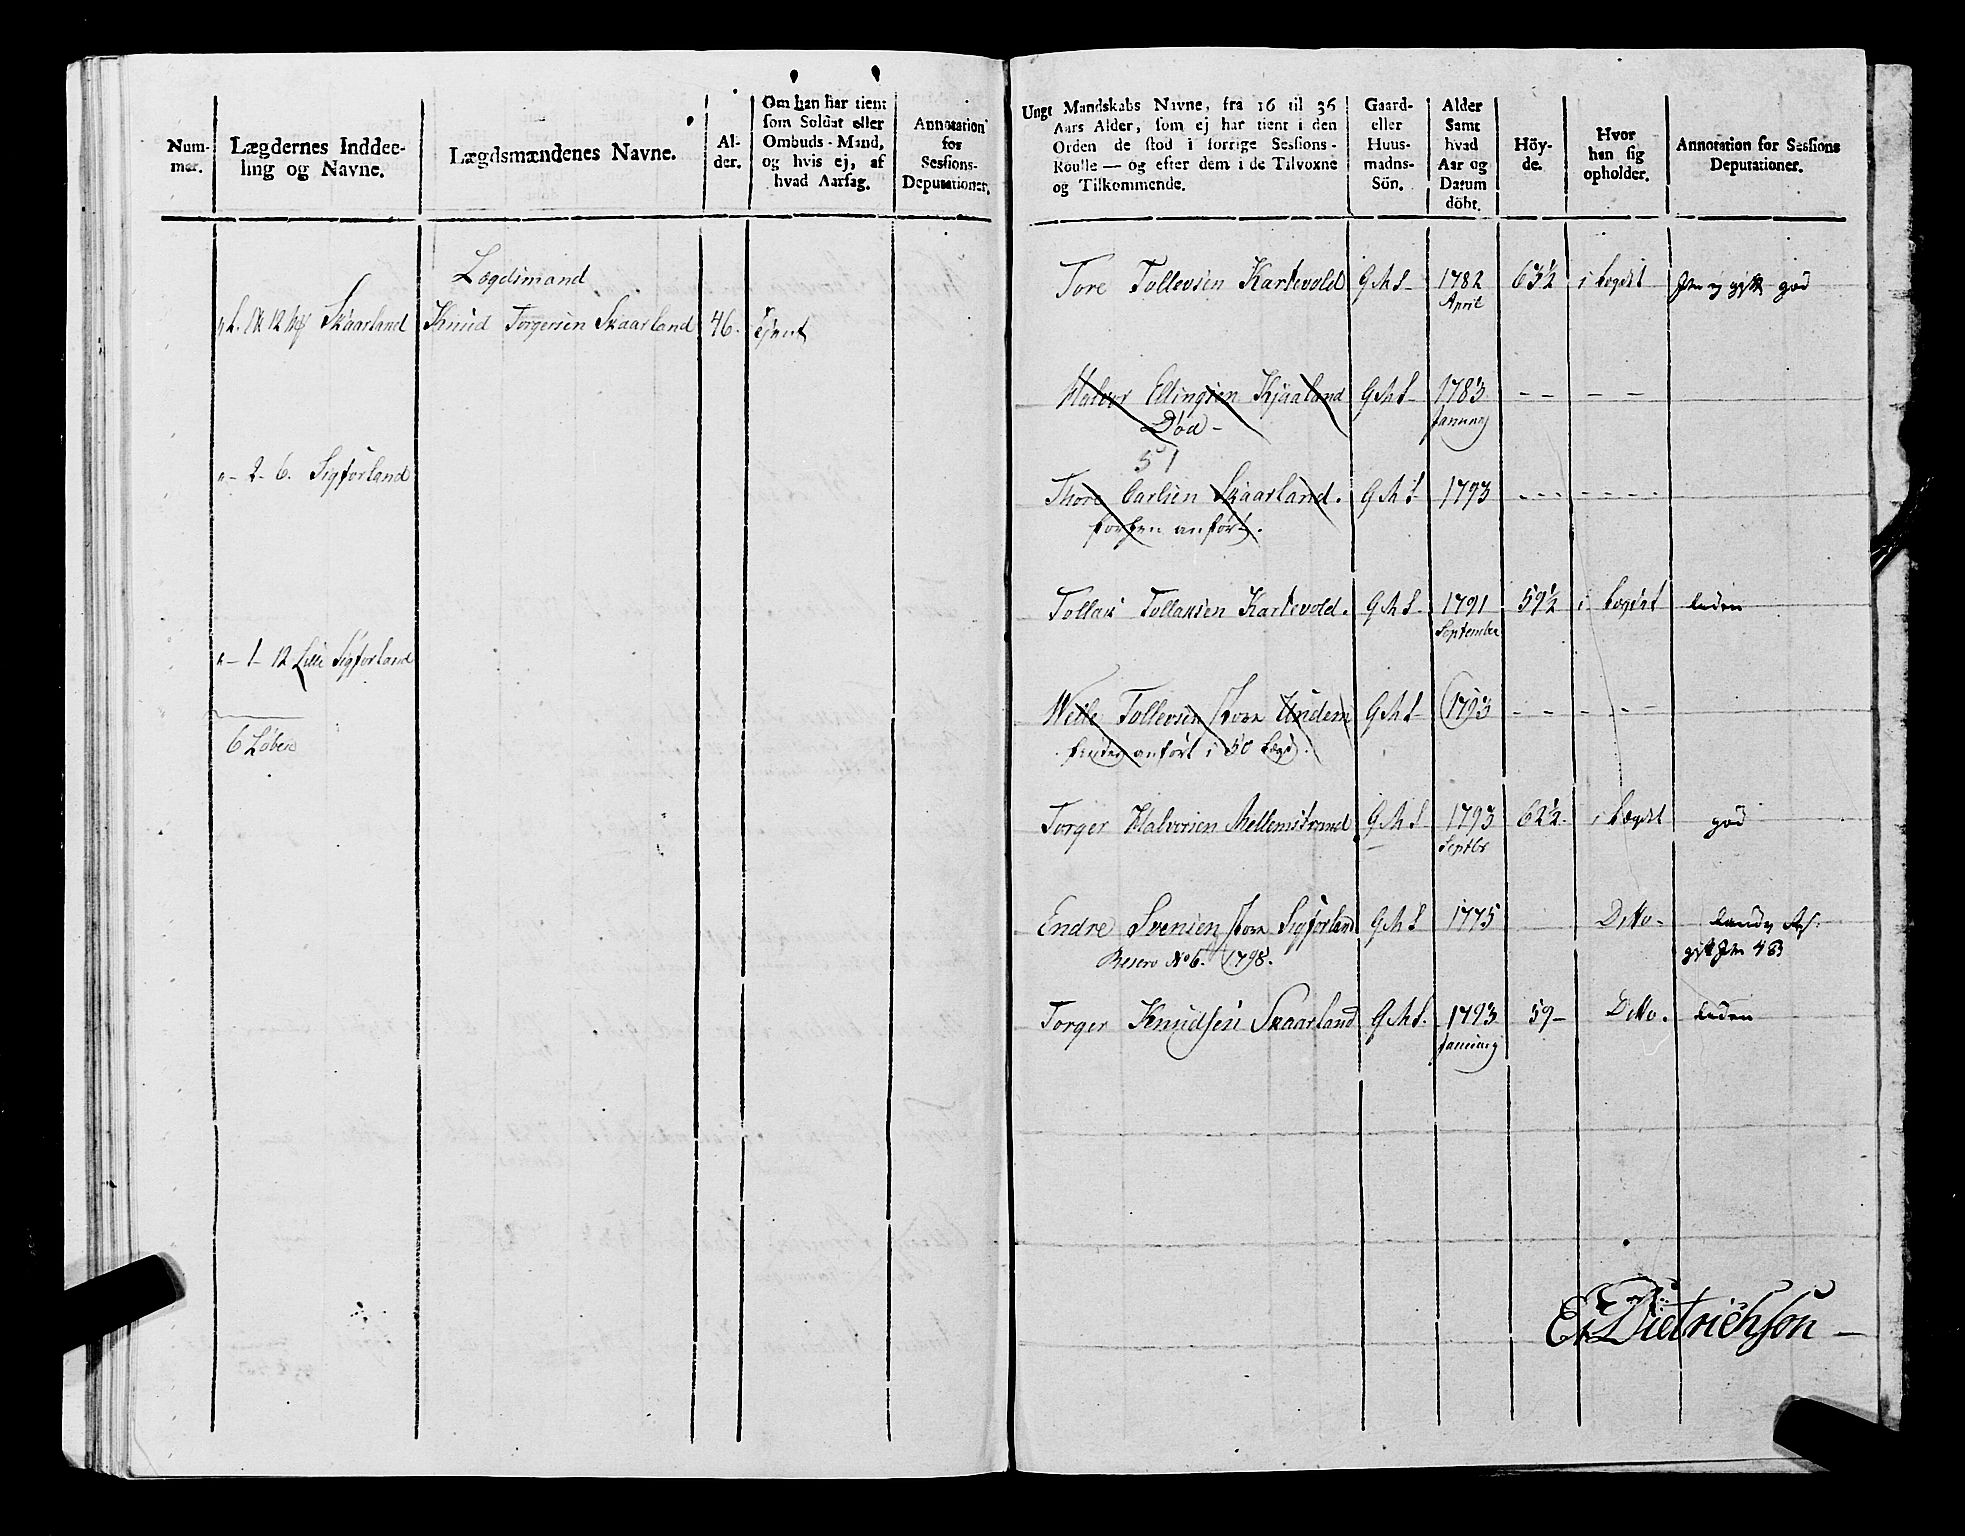 Num-
mer.
Lægdernes Inddee-
ling og Navne.
Lægdsmændenes Navne.
Al-
der.
Om han har tient
som Soldat eller
Ombuds-Mand,
og hvis ej, af
hvad Aarsag.
Annotation
for
Sessions-
Deputationer.
Lægdsmand
12 Skaarland Knud Torgersen Skaarland 46.
2 - 6. Sigforland
1 - 12 Lille Sigforland
6 Løber
Ungt Mandskabs Navne, fra 16 til 36
Aars Alder, som ej har tient i den
Orden de stod i forrige Sessions-
Roulle — og efter dem i de Tilvoxne
og Tilkommende.
Gaard-
eller
Huus-
mands-
Sön.
Alder
Samt
hvad
Aar og
Datum
döbt.
Höy-
de.
Hvor
han sig
opholder.
Annotation for Sessions
Deputationer.
Tore Tollevsen Kartevold G M S 1782 63½ i Lægdet gift god
April
Halvor Ellingsen Kjaaland G M S 1783 - - - -
Død - Januarj
51
Thore Carlsen Skaarland. G M S 1793 - - - - - -
forhen anført.
Tollak Tollaksen Kartevold. G M S 1791 59½ i Lægdet liden
September
Tollevsen Store Undem G M S 1793 - - - - -
anført i 50 Lægd.
Torger Halvorsen Mellemstrand G M S 1793 62½ i Lægdet god
Septbr
Endre Svensen Store Sigforland G M S 1775 Ditto -
Reserv No 6. 1798. gift
Torger Knudsen Skaarland G M S. 1793 59 - Ditto. liden
Januarj
E. Dietrichson